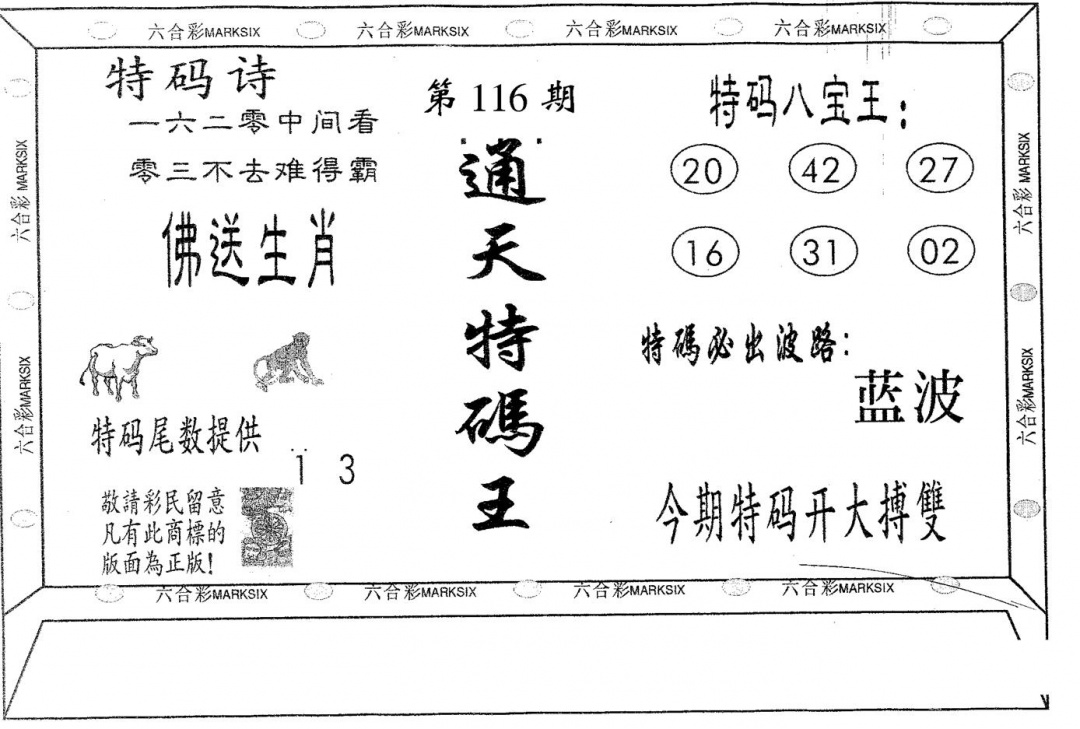 六合彩MARKSIX 六合彩MARKSIX 六合彩MARKSIX 六合彩MARKSIX
六合彩 MARKSIX
六合彩MARKSIX
特码诗
一六二零中间看
零三不去难得霸
佛送生肖
特码尾数提供
1 3
敬請彩民留意
凡有此商標的
版面為正版!
第 116 期
通
天
特
碼
王
特码八宝王:
20 42 27
16 31 02
特碼必出波路:
蓝波
今期特码开大搏雙
六合彩 MARKSIX
六合彩MARKSIX
六合彩MARKSIX 六合彩MARKSIX 六合彩MARKSIX 六合彩MARKSIX